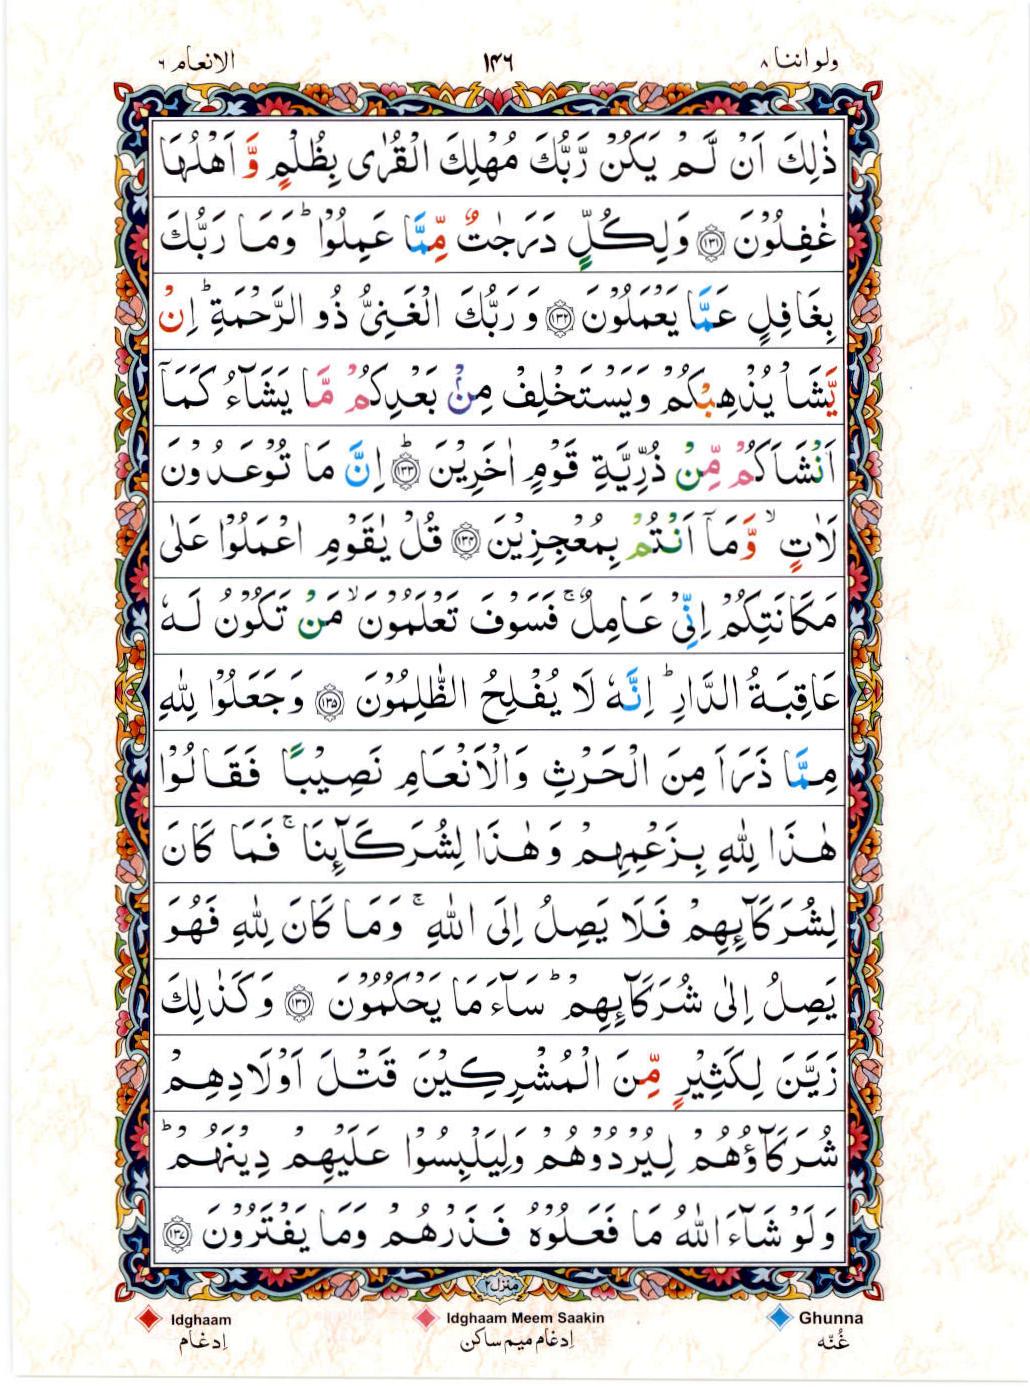 الانعام ٦ ١٤٦ ولو اننا ٨
ذٰلِكَ اَنْ لَّمْ يَكُنْ رَّبُّكَ مُهْلِكَ الْقُرٰى بِظُلْمٍ وَّ اَهْلُهَا
غٰفِلُوْنَ ﴿١٣١﴾ وَلِكُلٍّ دَرَجٰتٌ مِّمَّا عَمِلُوْا ؕ وَمَا رَبُّكَ
بِغَافِلٍ عَمَّا يَعْمَلُوْنَ ﴿١٣٢﴾ وَرَبُّكَ الْغَنِىُّ ذُو الرَّحْمَةِ ؕ اِنْ
يَّشَاْ يُذْهِبْكُمْ وَيَسْتَخْلِفْ مِنْۢ بَعْدِكُمْ مَّا يَشَآءُ كَمَآ
اَنْشَاَكُمْ مِّنْ ذُرِّيَّةِ قَوْمٍ اٰخَرِيْنَ ؕ﴿١٣٣﴾ اِنَّ مَا تُوْعَدُوْنَ
لَاٰتٍ ۙ وَّمَآ اَنْتُمْ بِمُعْجِزِيْنَ ﴿١٣٤﴾ قُلْ يٰقَوْمِ اعْمَلُوْا عَلٰى
مَكَانَتِكُمْ اِنِّىْ عَامِلٌ ۚ فَسَوْفَ تَعْلَمُوْنَ ۙ مَنْ تَكُوْنُ لَهٗ
عَاقِبَةُ الدَّارِ ؕ اِنَّهٗ لَا يُفْلِحُ الظّٰلِمُوْنَ ﴿١٣٥﴾ وَجَعَلُوْا لِلّٰهِ
مِمَّا ذَرَاَ مِنَ الْحَرْثِ وَالْاَنْعَامِ نَصِيْبًا فَقَالُوْا
هٰذَا لِلّٰهِ بِزَعْمِهِمْ وَهٰذَا لِشُرَكَآئِنَا ۚ فَمَا كَانَ
لِشُرَكَآئِهِمْ فَلَا يَصِلُ اِلَى اللّٰهِ ۚ وَمَا كَانَ لِلّٰهِ فَهُوَ
يَصِلُ اِلٰى شُرَكَآئِهِمْ ؕ سَآءَ مَا يَحْكُمُوْنَ ﴿١٣٦﴾ وَكَذٰلِكَ
زَيَّنَ لِكَثِيْرٍ مِّنَ الْمُشْرِكِيْنَ قَتْلَ اَوْلَادِهِمْ
شُرَكَآؤُهُمْ لِيُرْدُوْهُمْ وَلِيَلْبِسُوْا عَلَيْهِمْ دِيْنَهُمْ ؕ
وَلَوْ شَآءَ اللّٰهُ مَا فَعَلُوْهُ فَذَرْهُمْ وَمَا يَفْتَرُوْنَ ﴿١٣٧﴾
منزل ٢
Idghaam Idghaam Meem Saakin Ghunna
اِدغام اِدغام میم ساکن غُنّه